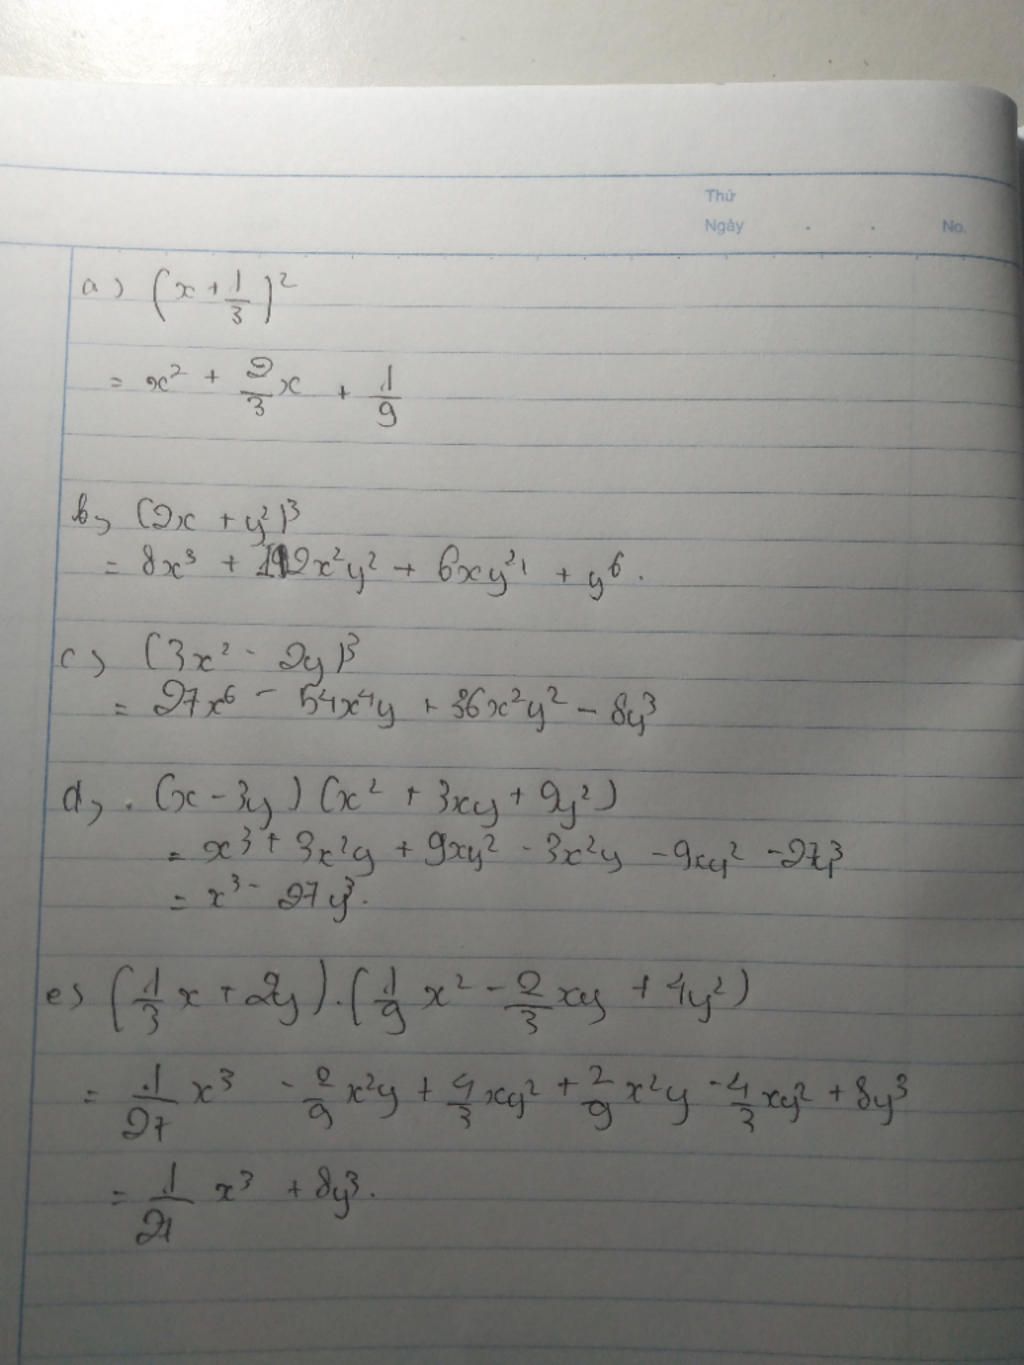 Thứ
Ngày . . No.
a) (x + 1/3)²
= x² + 2/3 x + 1/9
b) (2x + y²)³
= 8x³ + 12x²y² + 6xy⁴ + y⁶.
c) (3x² - 2y)³
= 27x⁶ - 54x⁴y + 36x²y² - 8y³
d) . (x - 3y) (x² + 3xy + 9y²)
= x³ + 3x²y + 9xy² - 3x²y - 9xy² - 27y³
= x³ - 27y³.
e) (1/3 x + 2y) . (1/9 x² - 2/3 xy + 4y²)
= 1/27 x³ - 2/9 x²y + 4/3 xy² + 2/9 x²y - 4/3 xy² + 8y³
= 1/27 x³ + 8y³.